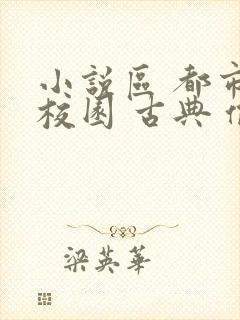 小說區 都市
校園 古典
梁英華